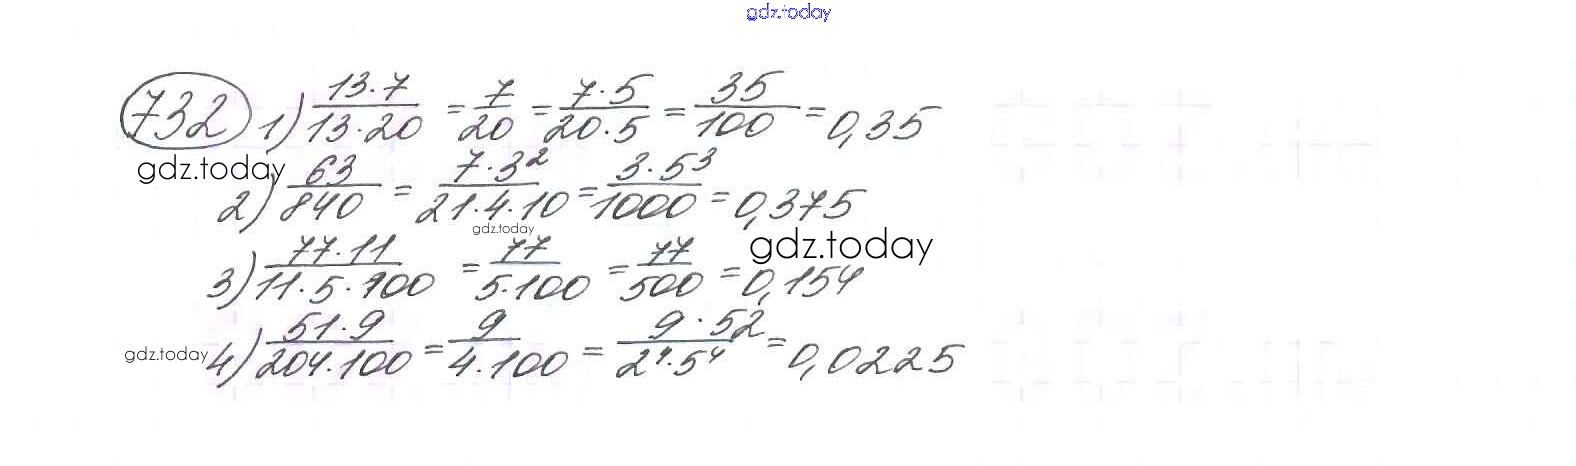 gdz.today
732 1) (13·7)/(13·20) = 7/20 = (7·5)/(20·5) = 35/100 = 0,35
gdz.today
2) 63/840 = (7·3²)/(21·4·10) = (3·5³)/1000 = 0,375
gdz.today
gdz.today
3) (77·11)/(11·5·100) = 77/(5·100) = 77/500 = 0,154
gdz.today
4) (51·9)/(204·100) = 9/(4·100) = (9·5²)/(2⁴·5⁴) = 0,0225